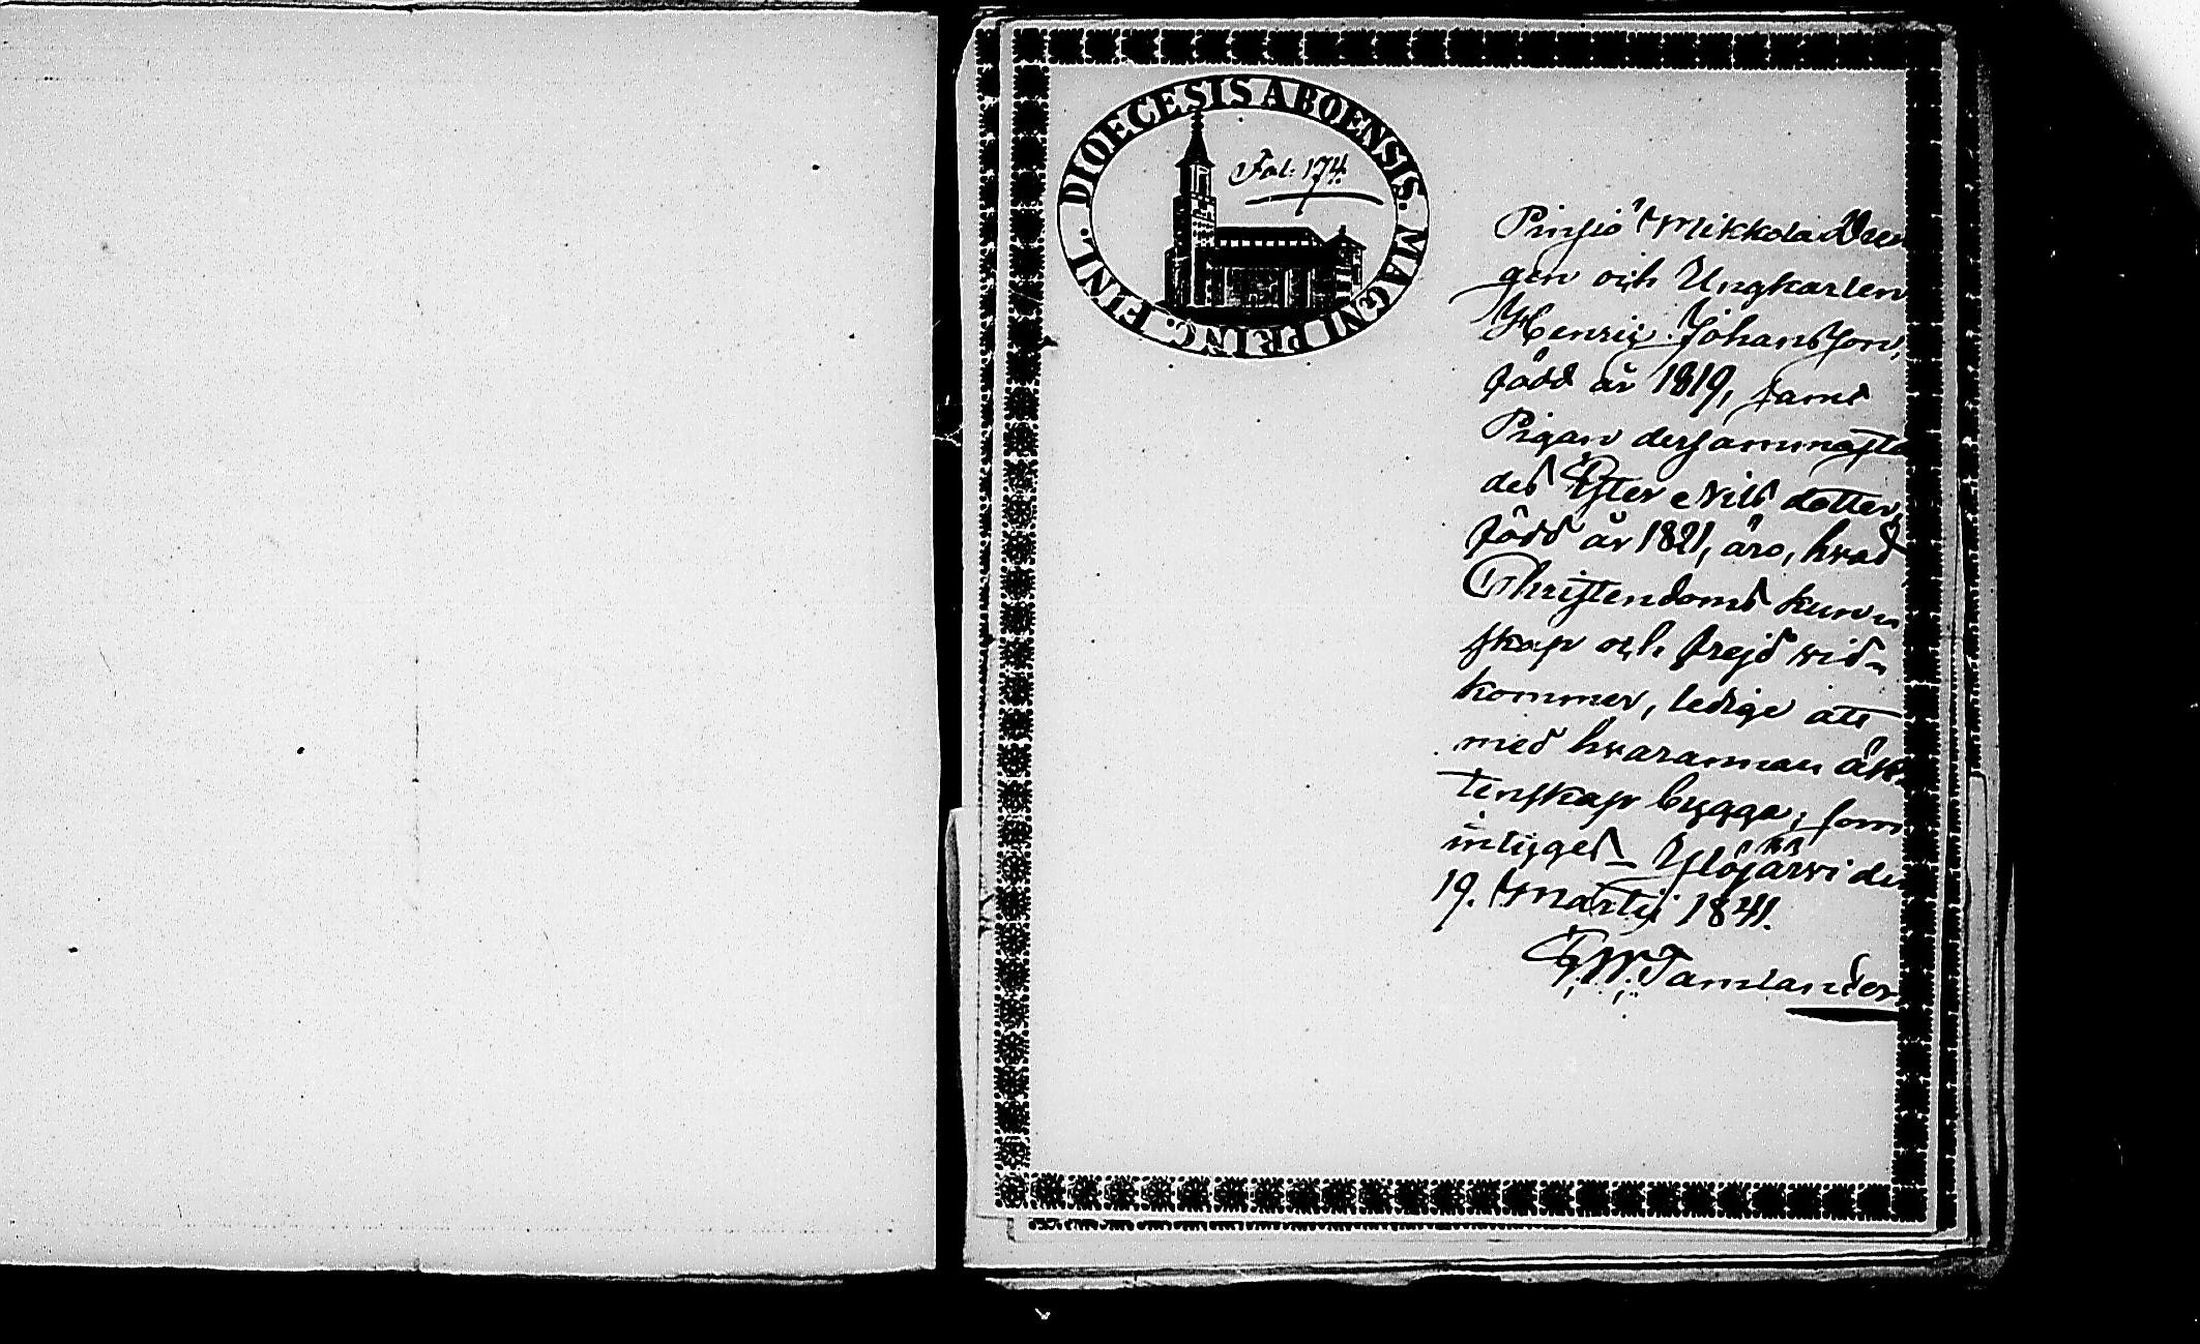 DIOECESIS ABOENSIS. MAGNI PRINC. FINL.
Fol: 174.
Pinsiö Mikkola Dren
gen och Ungkarlen
Henric Johansson,
född år 1819, samt
Pigan dersammasta
des Ester Nils dotter,
född år 1821, äro, hvad
Christendoms kunn
skap och frejd vid-
kommer, ledige att
med hvarannan äk-
tenskap bygga; som
intygas _ Ylöjärvi den
19. Martij 1841.
Tamlander